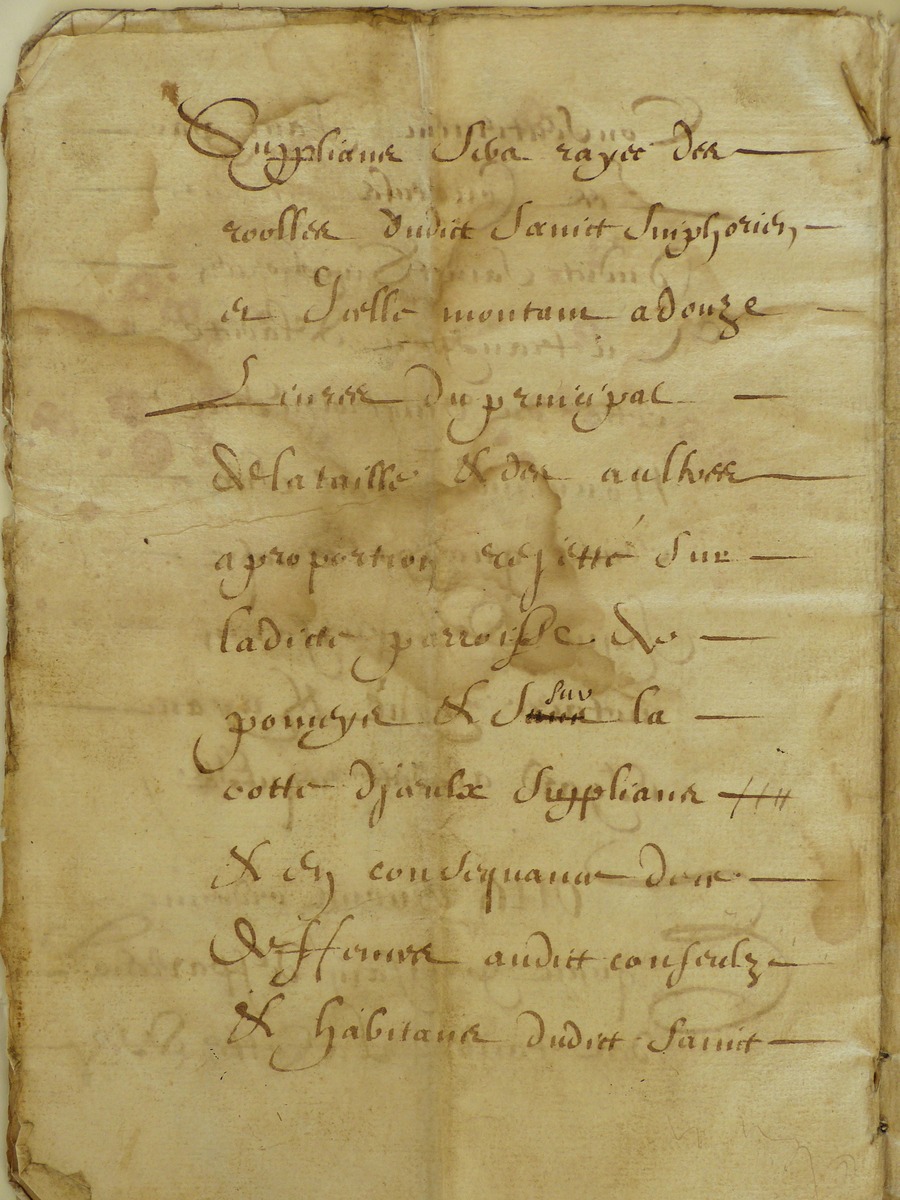 Supplians sera rayee des
roolles dudict Sainct Simphorien
et Icelle montant a douze
Livres du principal
de la taille & des aultres
a proportion rejetté sur
ladicte parroisse de
pomeys & sur la
cotte d'jceulx supplians
& en consequance des
deffences audict consulz
& habitans dudict Sainct